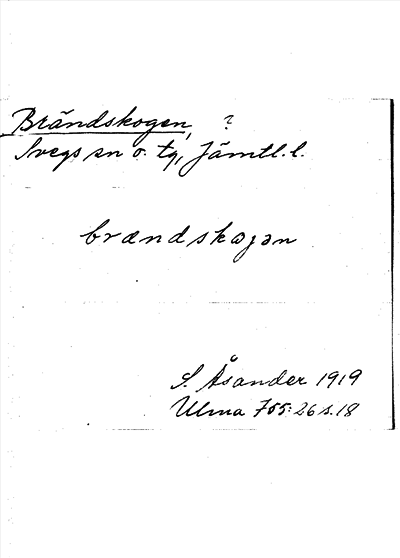 Brändskogen, ?
Svegs sn o. tg, Jämtl. l.
brændskogən
S. Åsander 1919
Ulma 755:26 s. 18